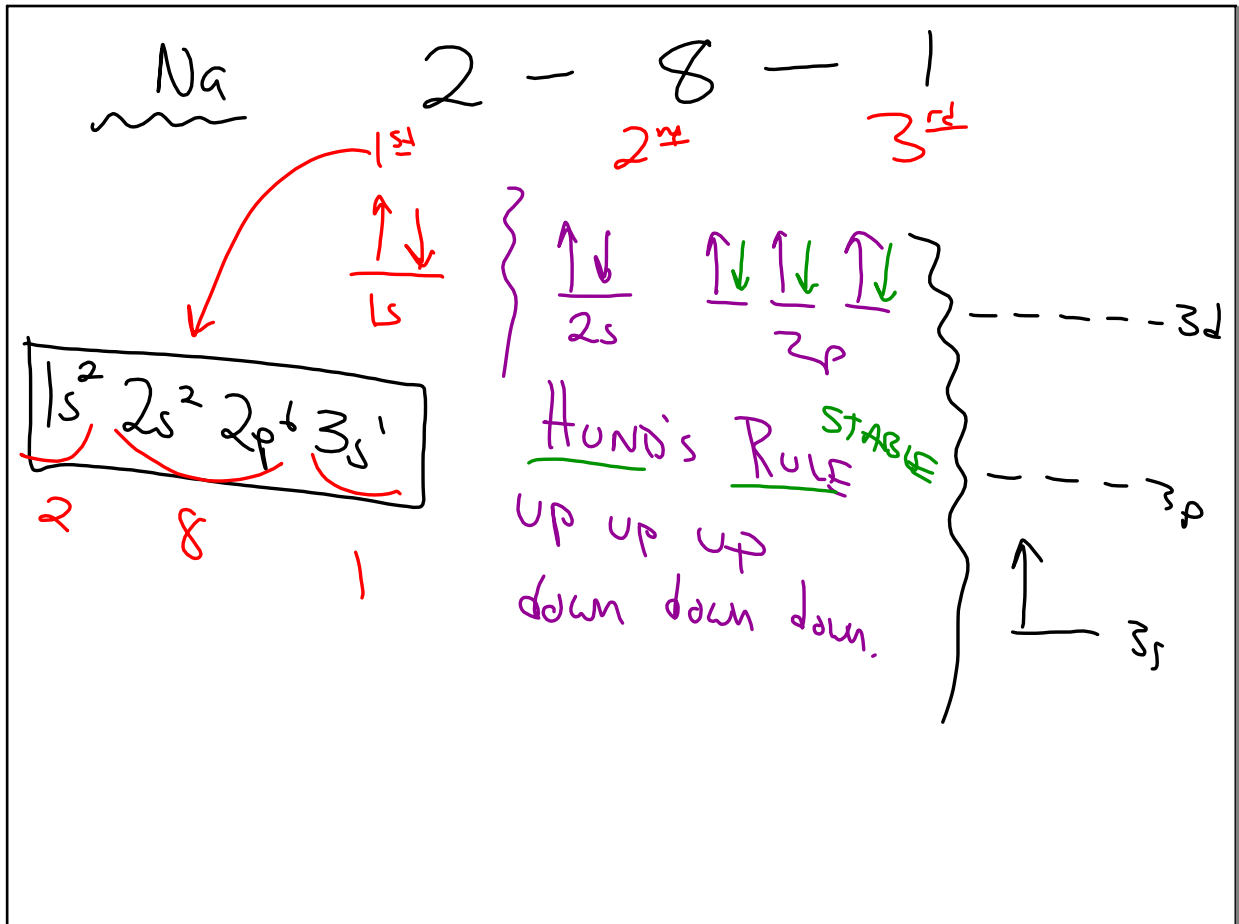 Na 2 - 8 - 1
1st 2nd 3rd
↑↓ ↑↓ ↑↓ ↑↓ ↑↓
1s 2s 2p
3d
1s² 2s² 2p⁶ 3s¹
2 8 1
HUND'S RULE STABLE
up up up
down down down.
3p
↑
3s